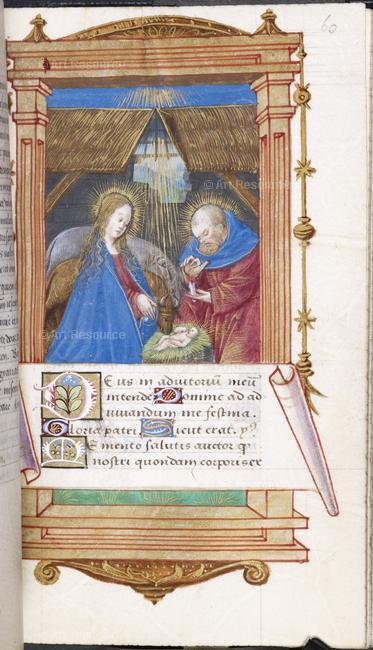 60
© Art Resource
© Art Resource
© Art Resource
Deus in adiutoriũ meũ
intende Domine ad ad
iuvandum me festina.
Gloria patri Sicut erat. ps
Memento salutis auctor q
nostri quondam corporis ex